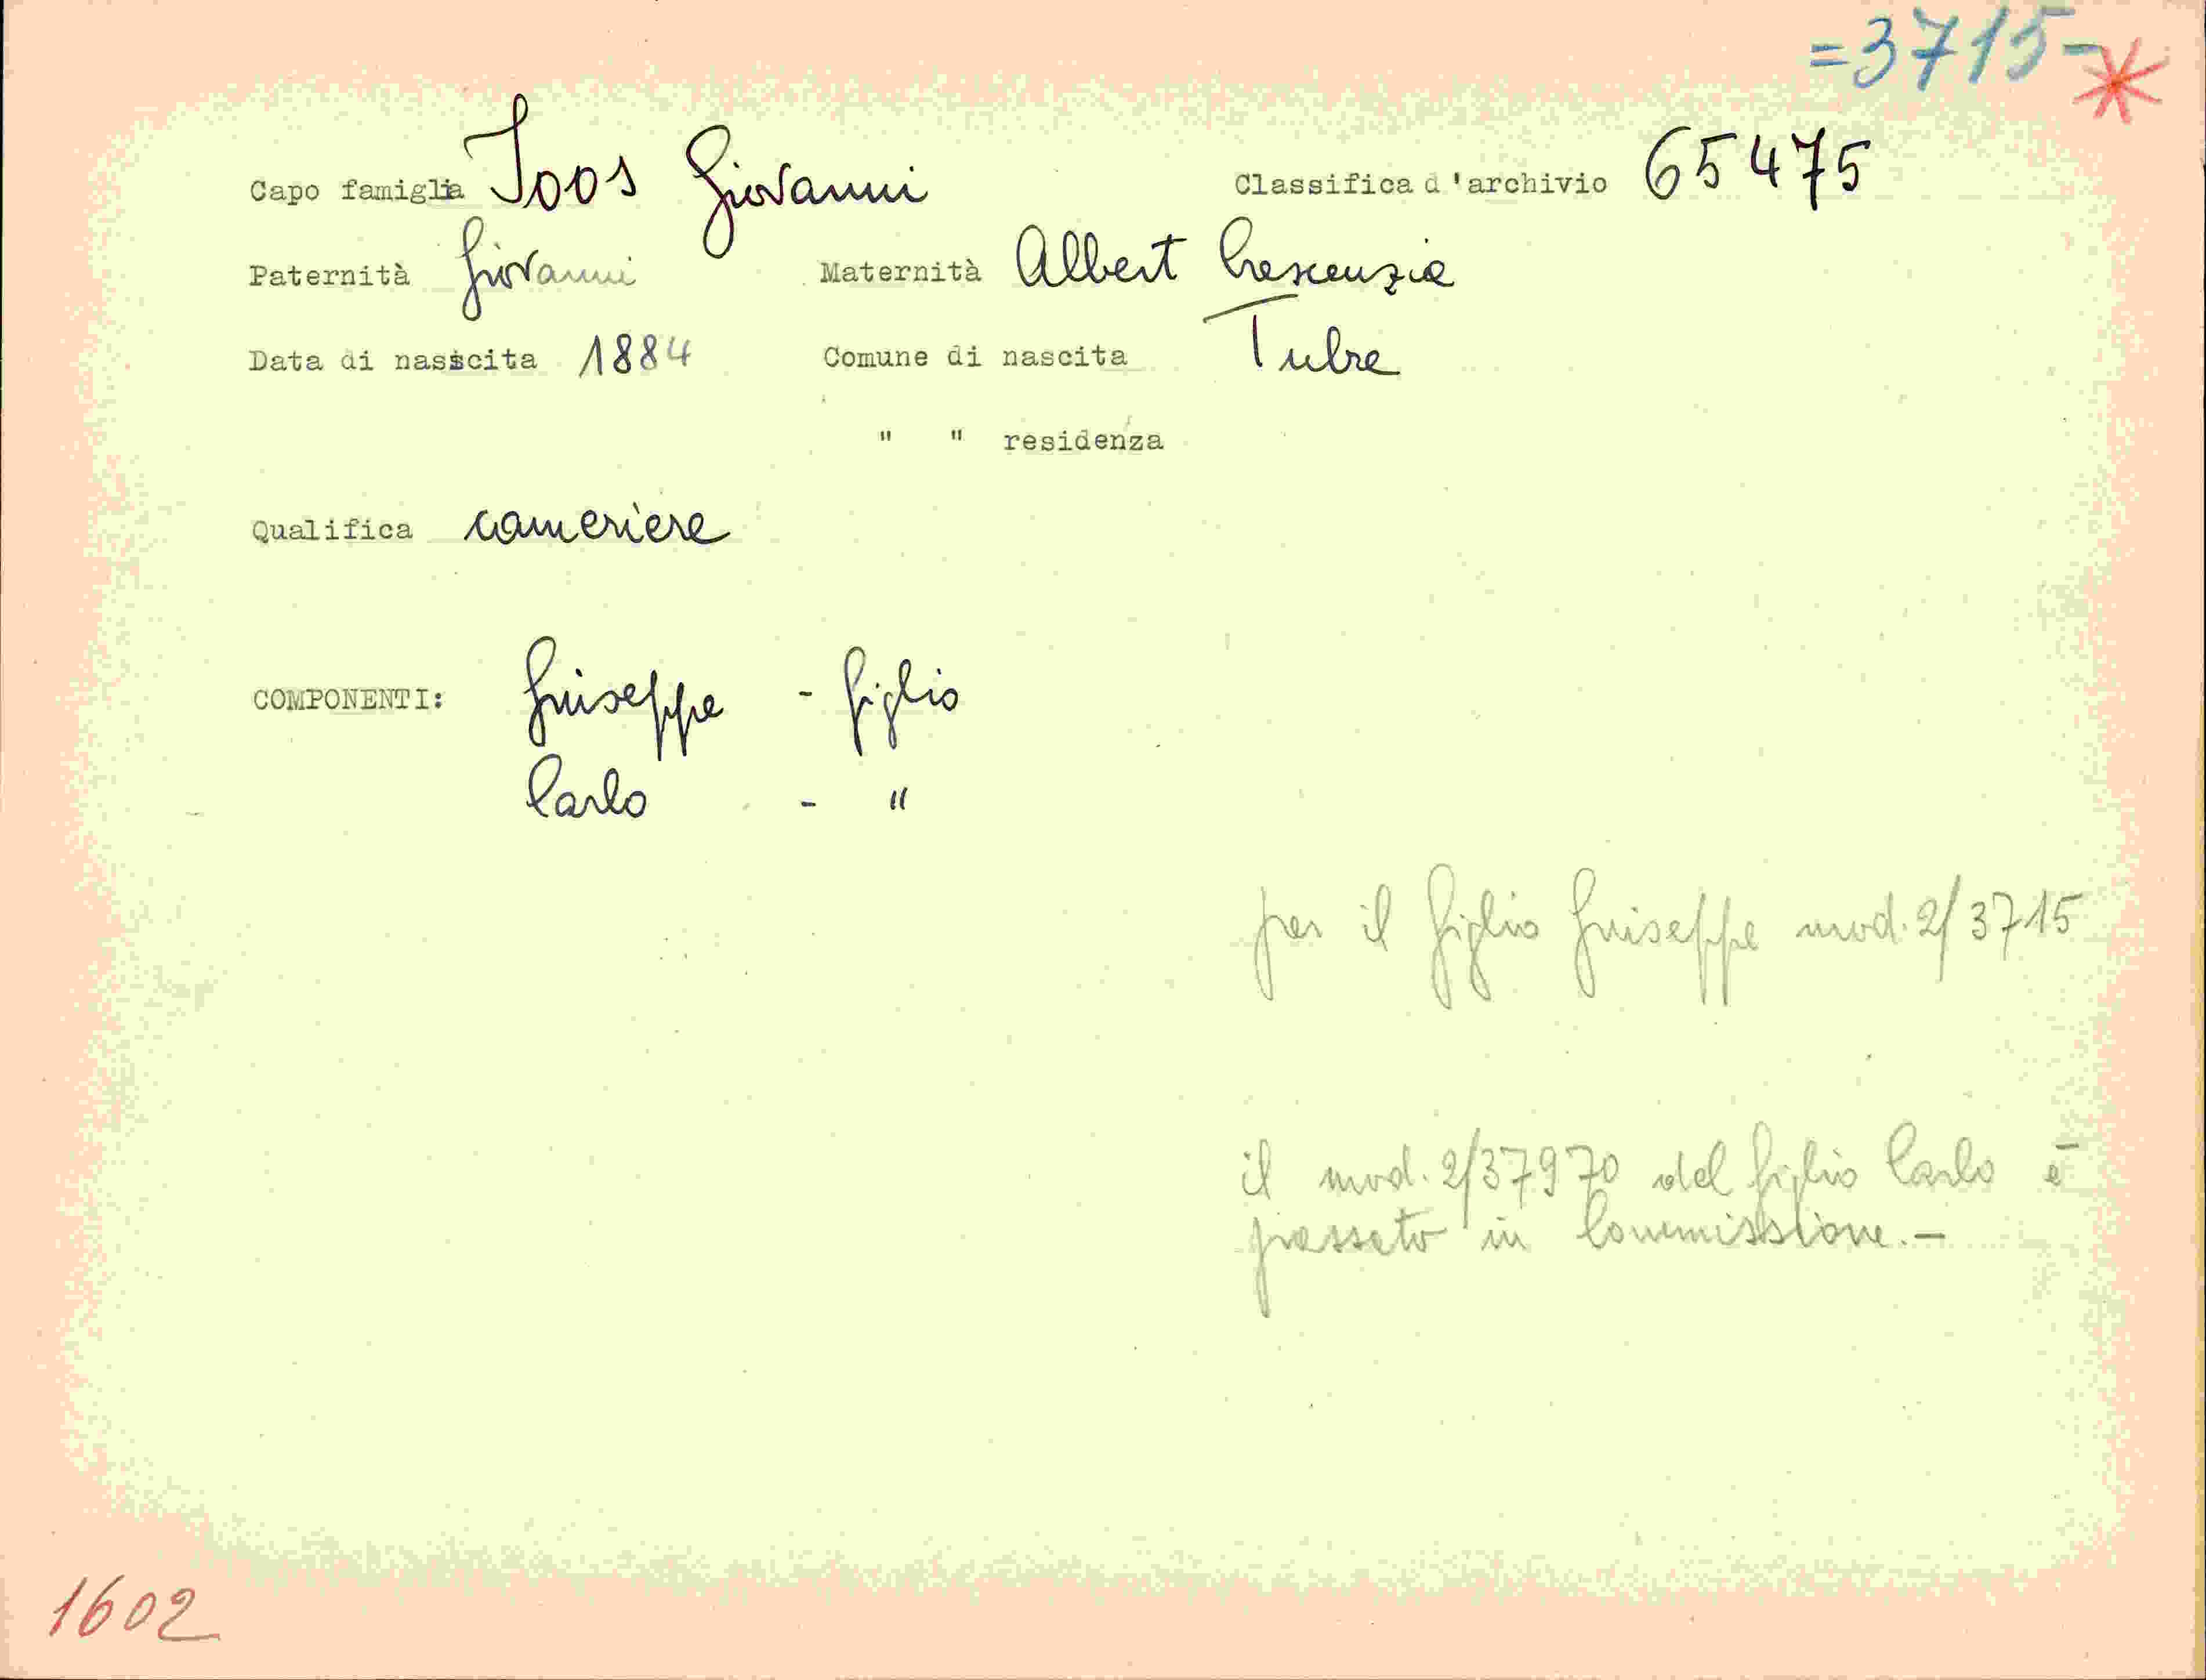 =3715-
Capo famiglia Joos Giovanni Classifica d'archivio 65475
Paternità Giovanni Maternità Albert Crescenzia
Data di nascita 1884 Comune di nascita Tubre
" " residenza
Qualifica cameriere
COMPONENTI: Giuseppe - figlio
Carlo - "
per il figlio Giuseppe mod. 2/3715
il mod. 2/37970 del figlio Carlo è
passato in Commissione.-
1602